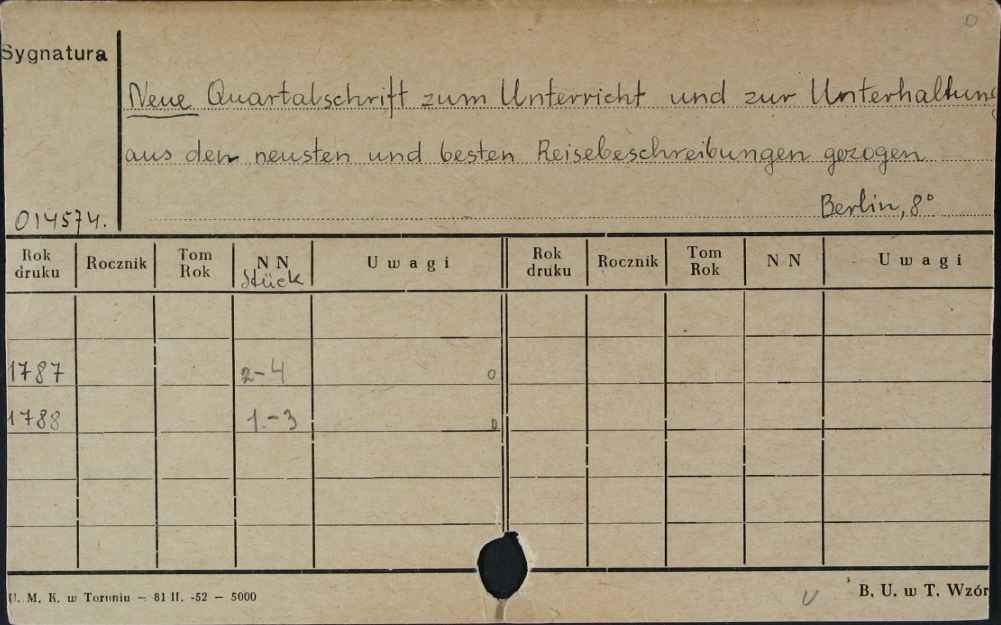 Sygnatura
Neue Quartalschrift zum Unterricht und zur Unterhaltung
aus den neusten und besten Reisebeschreibungen gezogen
Berlin, 8°
014574.
Rok druku Rocznik Tom Rok NN Stück Uwagi Rok druku Rocznik Tom Rok NN Uwagi
1787 2-4 0
1788 1.-3 0
U. M. K. w Toruniu — 81 II. -52 — 5000
B. U. w T. Wzór